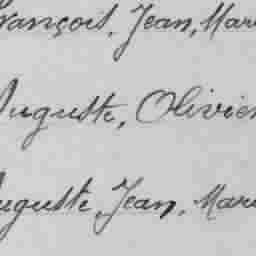 François, Jean, Mari
Auguste, Olivier
Auguste, Jean, Mari